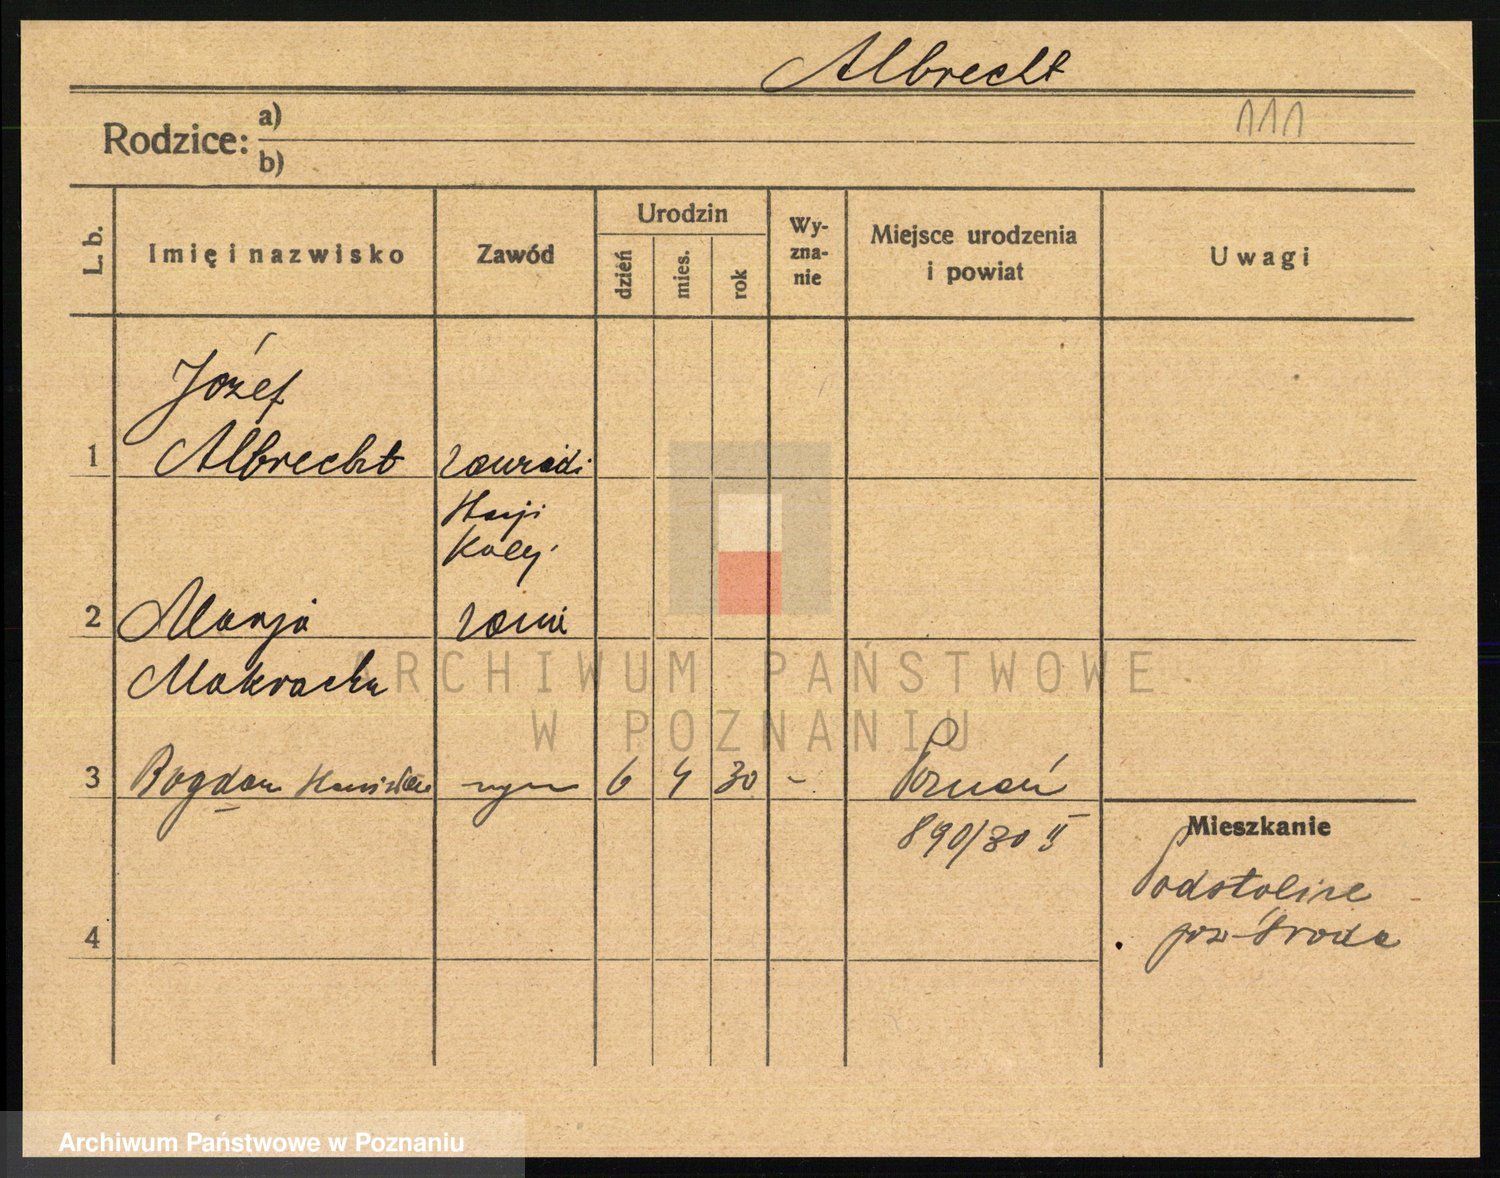 Albrecht
111
Rodzice: a)
b)
L. b.
Imię i nazwisko
Zawód
Urodzin
dzień
mies.
rok
Wy-
zna-
nie
Miejsce urodzenia
i powiat
Uwagi
Józef
1 Albrecht
Kolej.
2 Marja
3 Bogdan 6 4 30 - Poznań
890/30 II
Mieszkanie
Podstolice
pow. Środa
4
ARCHIWUM PAŃSTWOWE
W POZNANIU
Archiwum Państwowe w Poznaniu